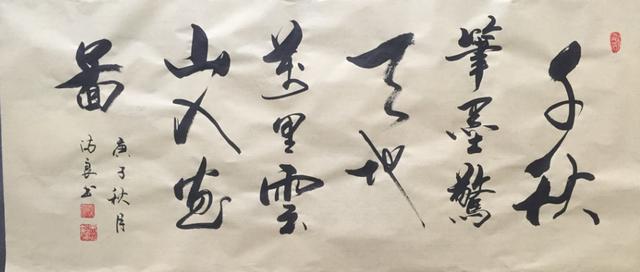 千秋
筆墨驚
天地
萬里雲
山入畫
圖
庚子秋月